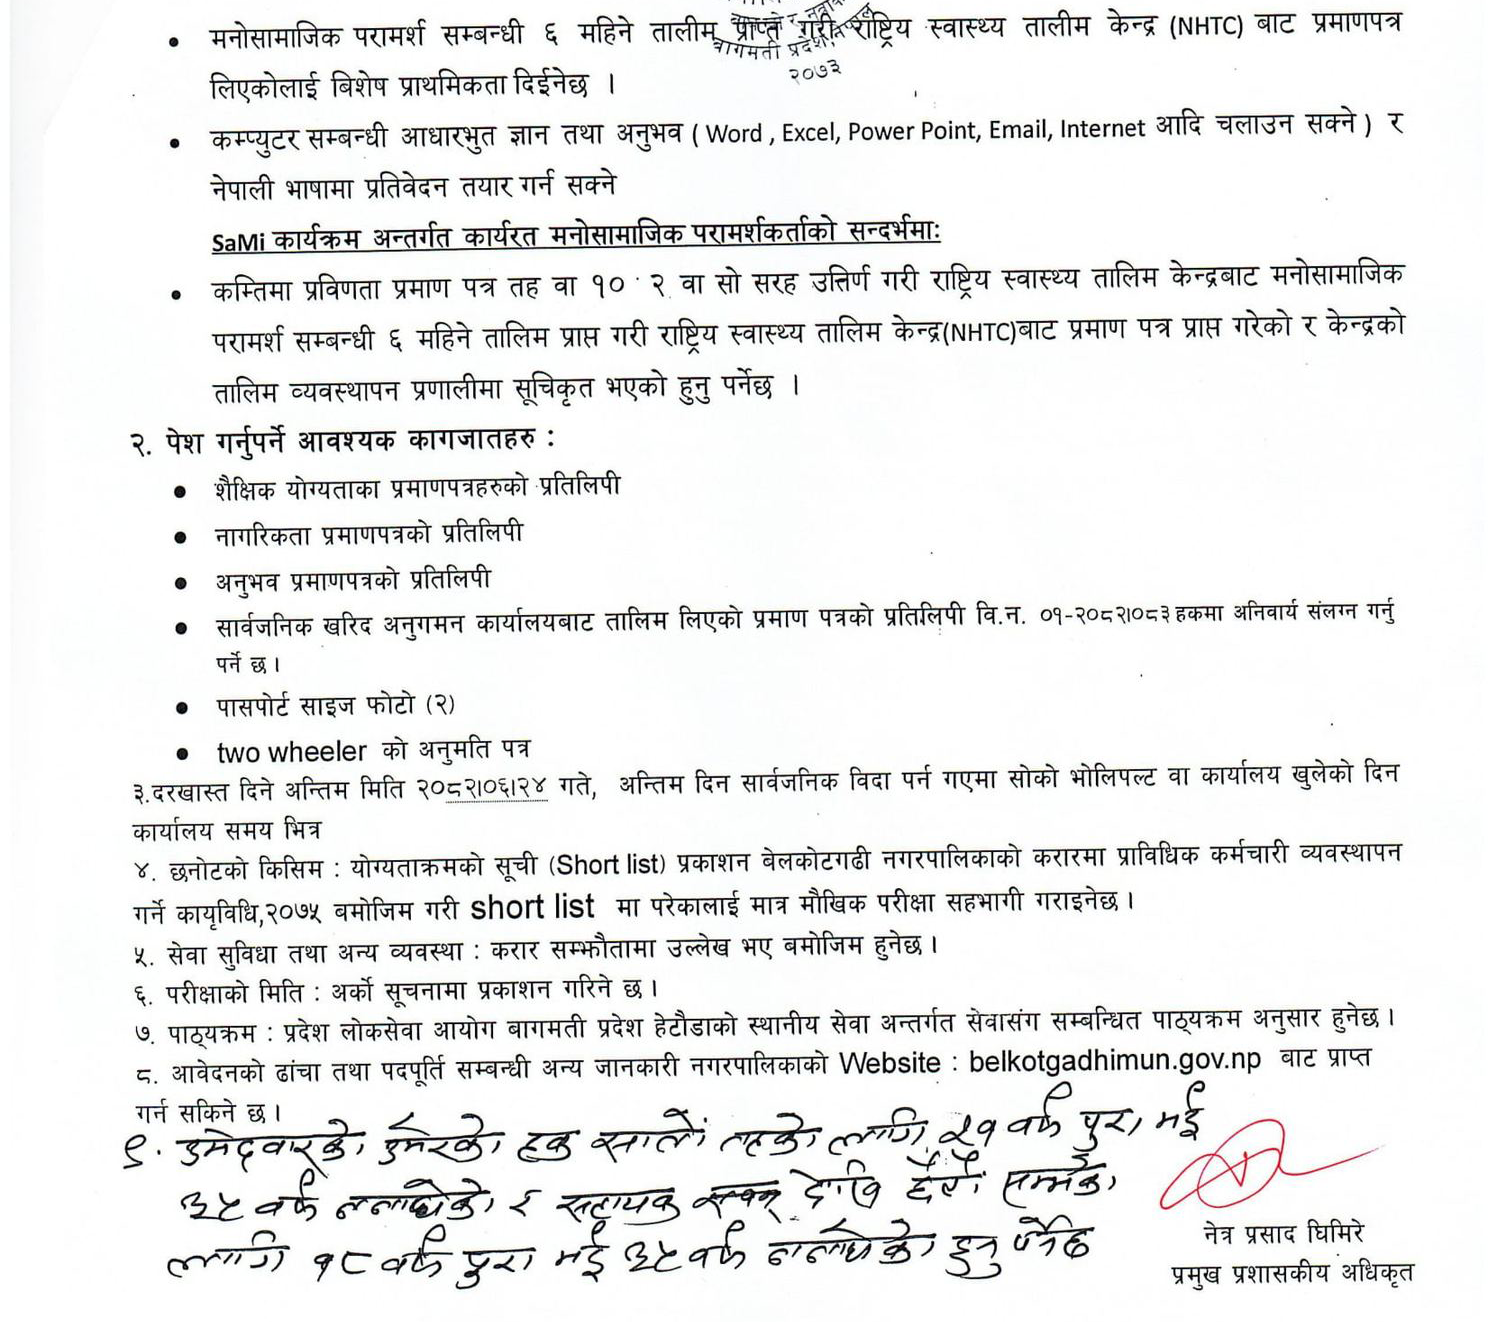 बागमती प्रदेश,
२०७३
• मनोसामाजिक परामर्श सम्बन्धी ६ महिने तालीम प्राप्त गरी राष्ट्रिय स्वास्थ्य तालीम केन्द्र (NHTC) बाट प्रमाणपत्र
लिएकोलाई बिशेष प्राथमिकता दिईनेछ ।
• कम्प्युटर सम्बन्धी आधारभुत ज्ञान तथा अनुभव ( Word , Excel, Power Point, Email, Internet आदि चलाउन सक्ने ) र
नेपाली भाषामा प्रतिवेदन तयार गर्न सक्ने
SaMi कार्यक्रम अन्तर्गत कार्यरत मनोसामाजिक परामर्शकर्ताको सन्दर्भमाः
• कम्तिमा प्रविणता प्रमाण पत्र तह वा १० २ वा सो सरह उत्तिर्ण गरी राष्ट्रिय स्वास्थ्य तालिम केन्द्रबाट मनोसामाजिक
परामर्श सम्बन्धी ६ महिने तालिम प्राप्त गरी राष्ट्रिय स्वास्थ्य तालिम केन्द्र(NHTC)बाट प्रमाण पत्र प्राप्त गरेको र केन्द्रको
तालिम व्यवस्थापन प्रणालीमा सूचिकृत भएको हुनु पर्नेछ ।
२. पेश गर्नुपर्ने आवश्यक कागजातहरु :
• शैक्षिक योग्यताका प्रमाणपत्रहरुको प्रतिलिपी
• नागरिकता प्रमाणपत्रको प्रतिलिपी
• अनुभव प्रमाणपत्रको प्रतिलिपी
• सार्वजनिक खरिद अनुगमन कार्यालयबाट तालिम लिएको प्रमाण पत्रको प्रतिलिपी वि.न. ०१-२०८२।०८३ हकमा अनिवार्य संलग्न गर्नु
पर्ने छ ।
• पासपोर्ट साइज फोटो (२)
• two wheeler को अनुमति पत्र
३.दरखास्त दिने अन्तिम मिति २०८२।०६।२४ गते, अन्तिम दिन सार्वजनिक विदा पर्न गएमा सोको भोलिपल्ट वा कार्यालय खुलेको दिन
कार्यालय समय भित्र
४. छनोटको किसिम : योग्यताक्रमको सूची (Short list) प्रकाशन बेलकोटगढी नगरपालिकाको करारमा प्राविधिक कर्मचारी व्यवस्थापन
गर्ने कायृविधि,२०७५ बमोजिम गरी short list मा परेकालाई मात्र मौखिक परीक्षा सहभागी गराइनेछ ।
५. सेवा सुविधा तथा अन्य व्यवस्था : करार सम्झौतामा उल्लेख भए बमोजिम हुनेछ ।
६. परीक्षाको मिति : अर्को सूचनामा प्रकाशन गरिने छ ।
७. पाठ्यक्रम : प्रदेश लोकसेवा आयोग बागमती प्रदेश हेटौडाको स्थानीय सेवा अन्तर्गत सेवासंग सम्बन्धित पाठ्यक्रम अनुसार हुनेछ ।
८. आवेदनको ढांचा तथा पदपूर्ति सम्बन्धी अन्य जानकारी नगरपालिकाको Website : belkotgadhimun.gov.np बाट प्राप्त
गर्न सकिने छ ।
९. उमेदवारको उमेरको हक सातौं तहको लागि २१ वर्ष पुरा भई
३५ वर्ष ननाघेको र सहायक देखि छैटौं सम्मका
लागि १८ वर्ष पुरा भई ३५ वर्ष ननाघेको हुनु पर्नेछ
नेत्र प्रसाद घिमिरे
प्रमुख प्रशासकीय अधिकृत